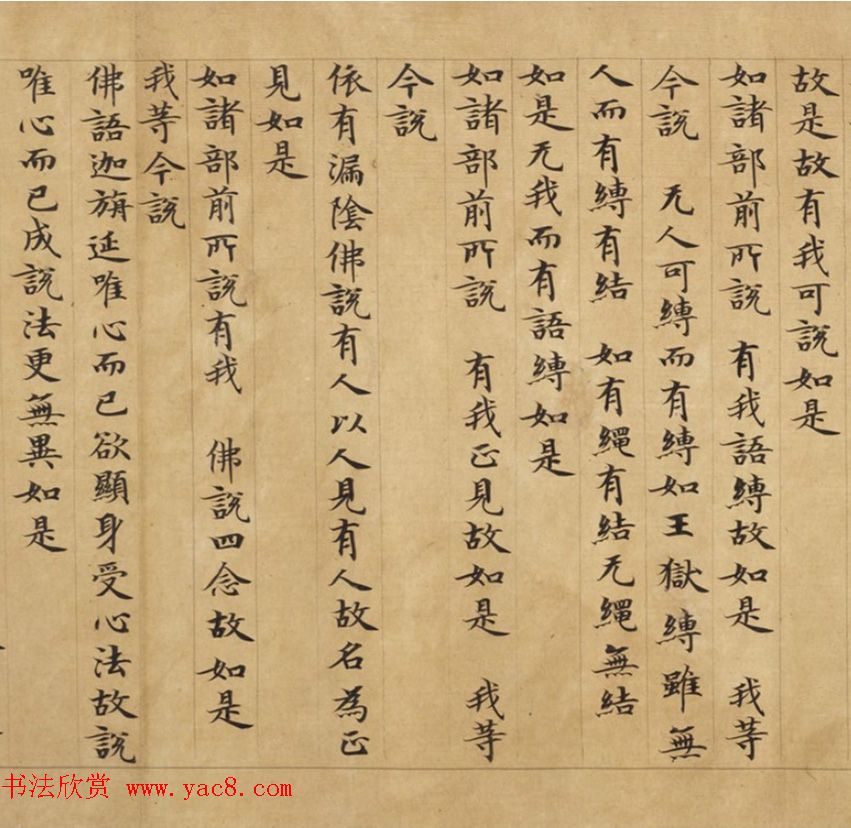 故是故有我可說如是
如諸部前所說　有我語縛故如是　我等
今說　无人可縛而有縛如王獄縛雖無
人而有縛有結　如有繩有結无繩無結
如是无我而有語縛如是
如諸部前所說　有我正見故如是　我等
今說
依有漏陰佛說有人以人見有人故名為正
見如是
如諸部前所說有我　佛說四念故如是
我等今說
佛語迦旃延唯心而已欲顯身受心法故說
唯心而已成說法更無異如是
书法欣赏 www.yac8.com